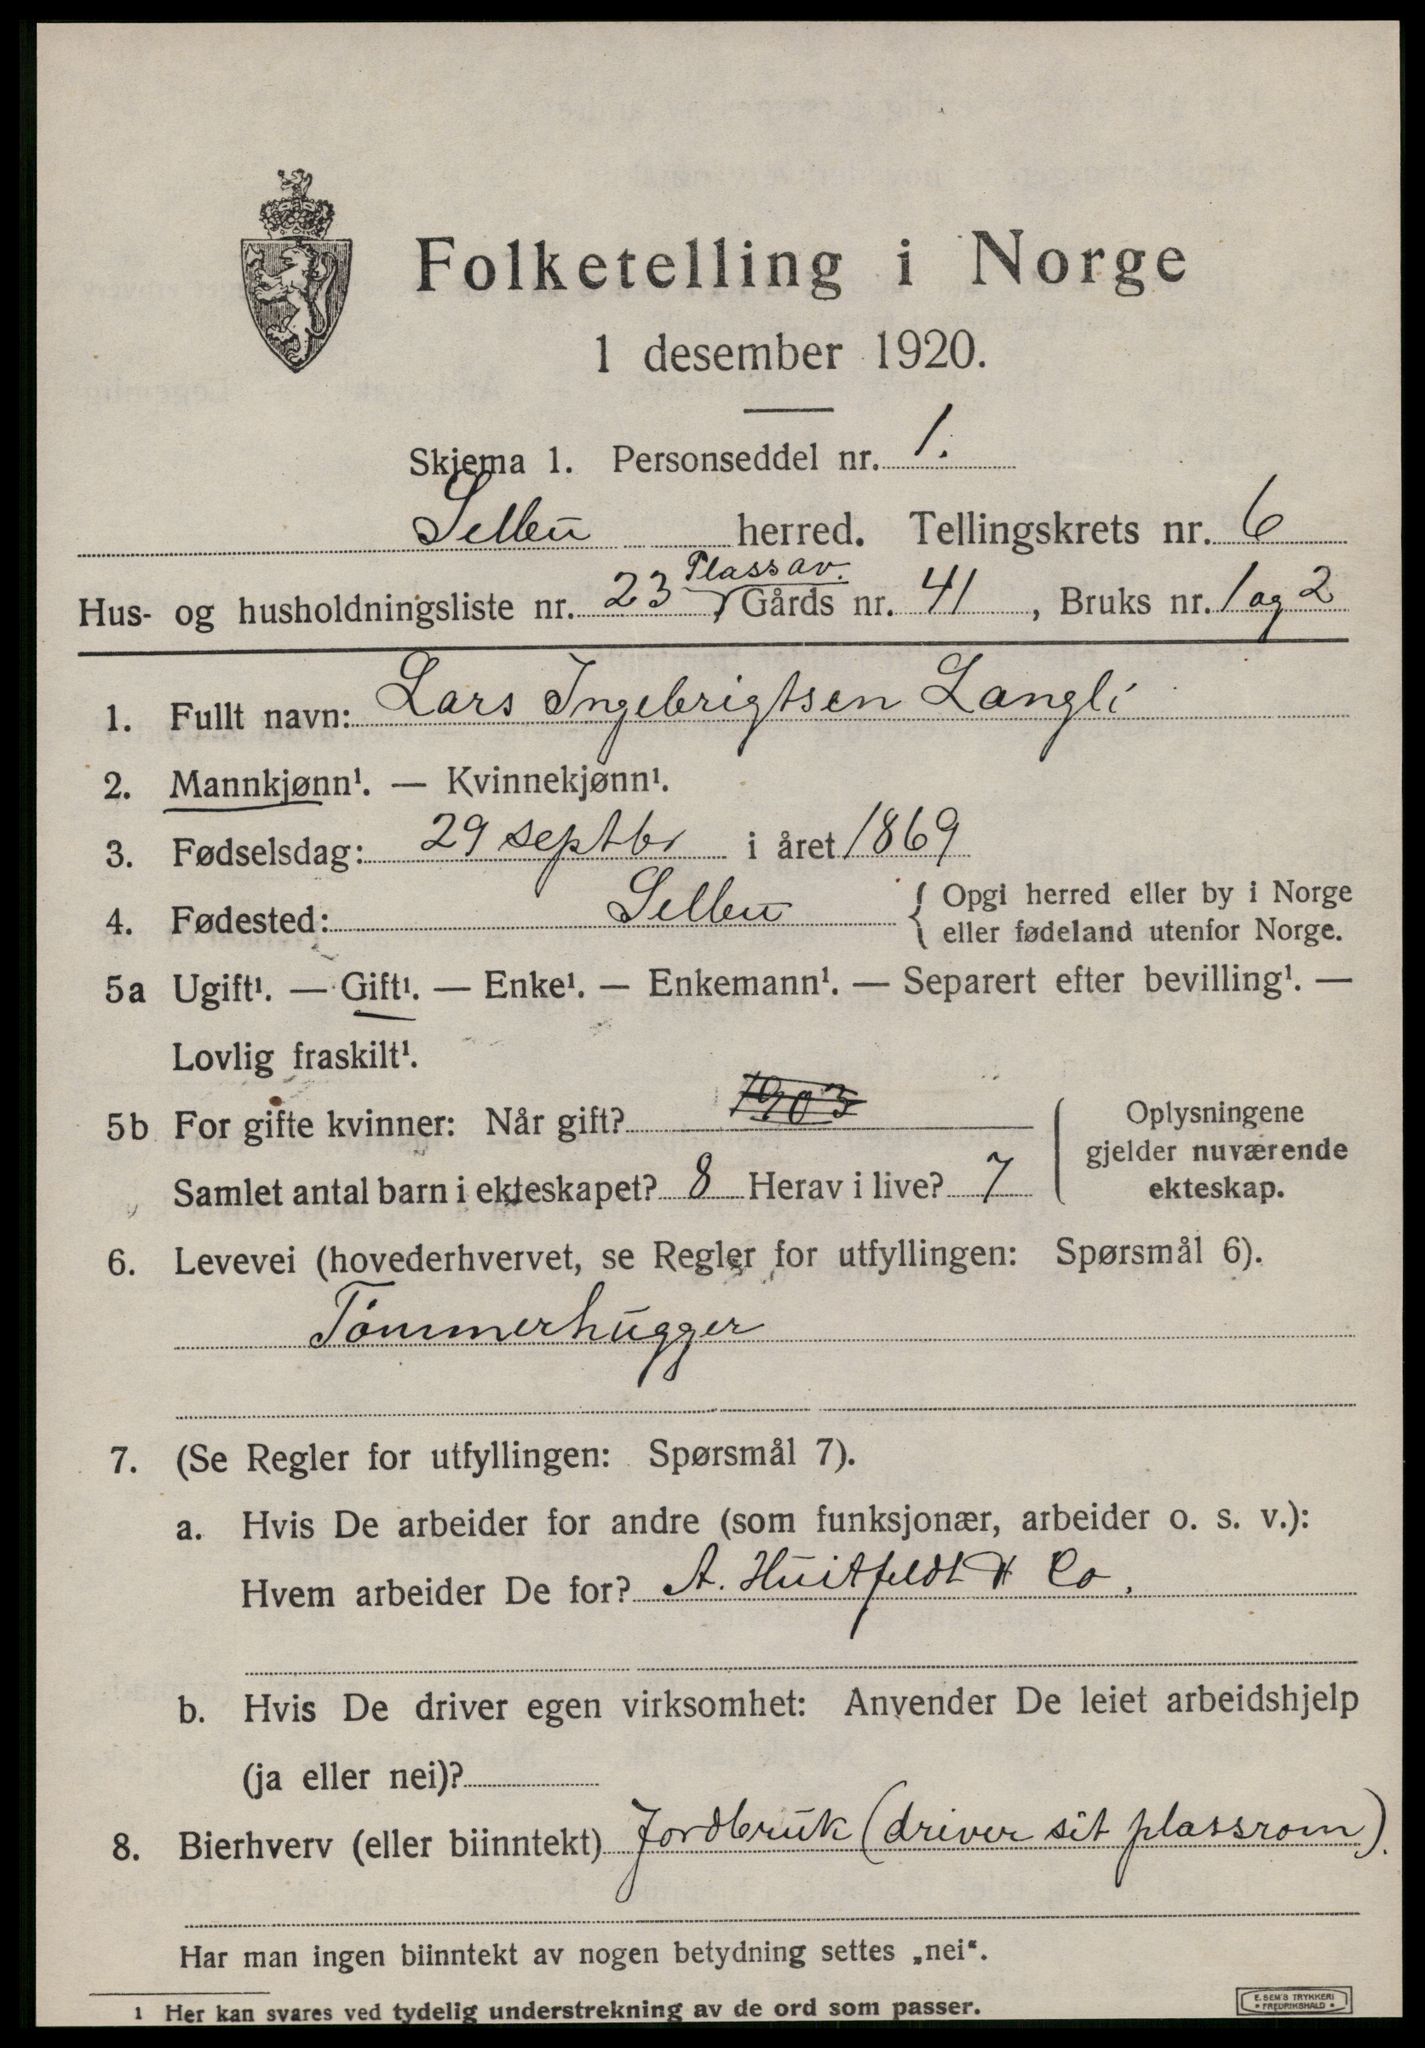 Folketelling i Norge
1 desember 1920.
Skjema 1. Personseddel nr. 1.
Selbu herred. Tellingskrets nr. 6
Plass av.
Hus- og husholdningsliste nr. 23, Gårds nr. 41, Bruks nr. 1 og 2
1. Fullt navn: Lars Ingebrigtsen Langli
2. Mannkjønn¹. — Kvinnekjønn¹.
3. Fødselsdag: 29 septbr i året 1869
4. Fødested: Selbu { Opgi herred eller by i Norge
eller fødeland utenfor Norge.
5a Ugift¹. — Gift¹. — Enke¹. — Enkemann¹. — Separert efter bevilling¹. —
Lovlig fraskilt¹.
5b For gifte kvinner: Når gift? 1903
Samlet antal barn i ekteskapet? 8 Herav i live? 7
Oplysningene
gjelder nuværende
ekteskap.
6. Levevei (hovederhvervet, se Regler for utfyllingen: Spørsmål 6).
Tømmerhugger
7. (Se Regler for utfyllingen: Spørsmål 7).
a. Hvis De arbeider for andre (som funksjonær, arbeider o. s. v.):
Hvem arbeider De for? A. Huitfeldt & Co.
b. Hvis De driver egen virksomhet: Anvender De leiet arbeidshjelp
(ja eller nei)?
8. Bierhverv (eller biinntekt) Jordbruk (driver sit plassrom).
Har man ingen biinntekt av nogen betydning settes „nei“.
1 Her kan svares ved tydelig understrekning av de ord som passer.
E. SEM'S TRYKKERI
* FREDRIKSHALD *